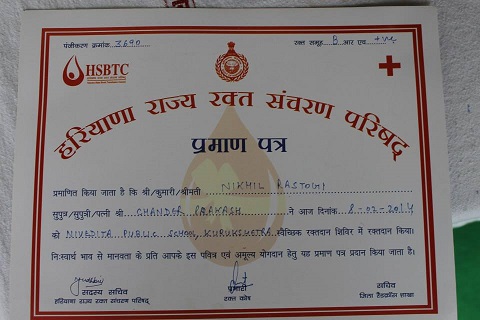 पंजीकरण क्रमांक 3690
रक्त समूह B आर एच +ve
HSBTC
हरियाणा राज्य रक्त संचरण परिषद्
प्रमाण पत्र
प्रमाणित किया जाता है कि श्री/कुमारी/श्रीमती NIKHIL RASTOGI
सुपुत्र/सुपुत्री/पत्नी श्री CHANDER PRAKASH ने आज दिनांक 8-02-2014
को NIVEDITA PUBLIC SCHOOL, KURUKSHETRA स्वैच्छिक रक्तदान शिविर में रक्तदान किया।
निःस्वार्थ भाव से मानवता के प्रति आपके इस पवित्र एवं अमूल्य योगदान हेतु यह प्रमाण पत्र प्रदान किया जाता है।
सदस्य सचिव
हरियाणा राज्य रक्त संचरण परिषद्
प्रभारी
रक्त कोष
सचिव
जिला रैडक्रॉस शाखा